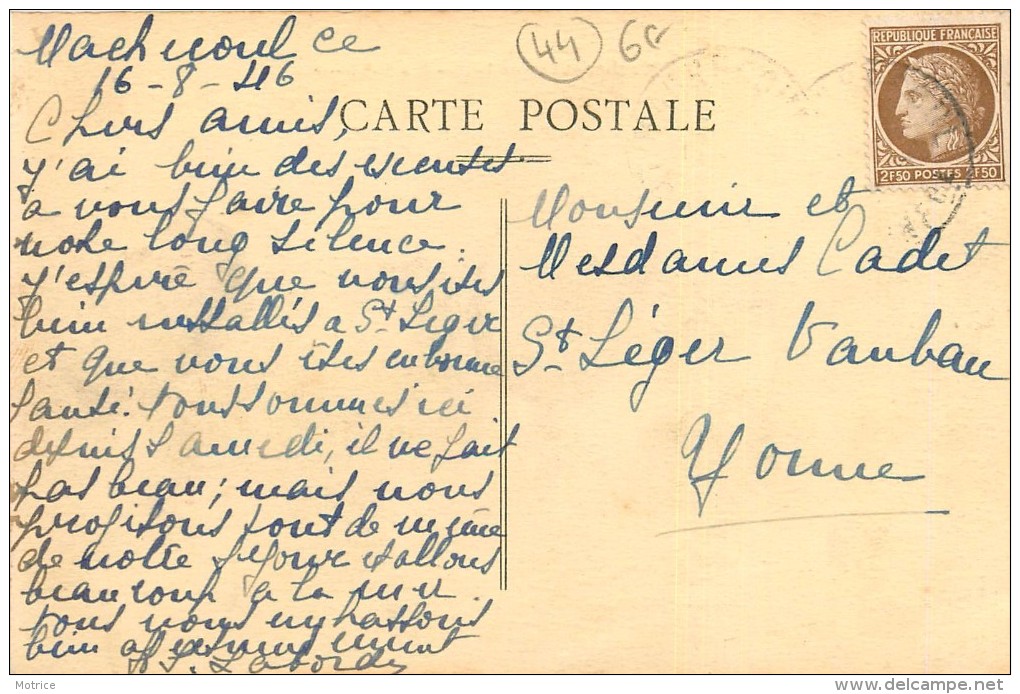 Machecoul ce
16-8-46
Chers amis,
j'ai bien des excuses
a vous faire pour
notre long silence.
J'espère que vous êtes
bien installés a St Léger
et que vous êtes en bonne
santé. tous sommes ici
depuis samedi, il ne fait
pas beau; mais nous
profitons tout de même
de notre séjour et allons
beaucoup a la mer.
tous nous embrassons
bien affectueusement
Laborde
44
6c
CARTE POSTALE
REPUBLIQUE FRANÇAISE
2F50 POSTES 2F50
Monsieur et
Mesdames Cadet
St Léger Vauban
Yonne
Motrice
delcampe.net